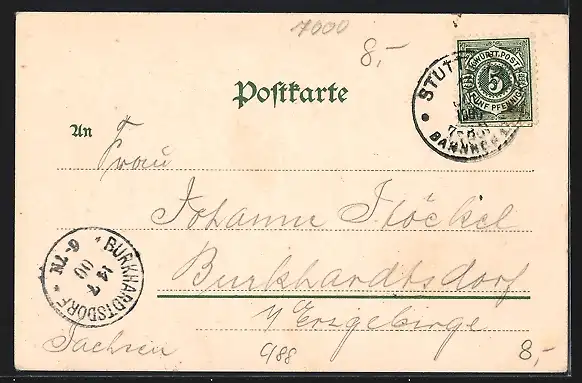 7000
8,-
Postkarte
K. WÜRTT. POST
5
FÜNF PFENNIG
STUTT
BAHNHOF
An
Frau
Johanne Stöckel
Burkhardtsdorf
i/ Erzgebirge
Sachsen
BURKHARDTSDORF
14 7
00
6-7N
9/88
8,-